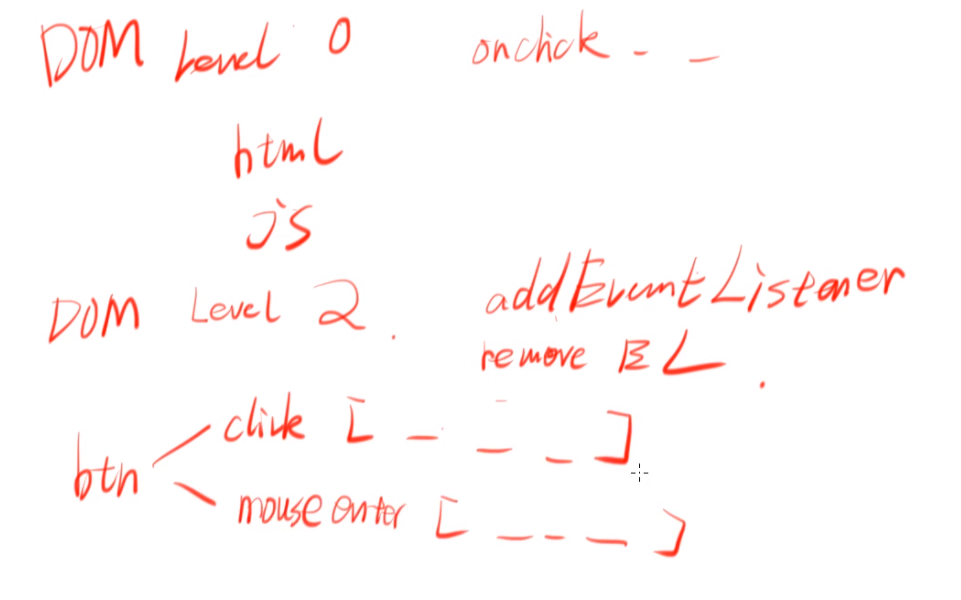 DOM Level 0 onclick - -
html
JS
DOM Level 2. addEventListener
remove EL.
btn
click [ - - - ]
mouseenter [ - - - ]